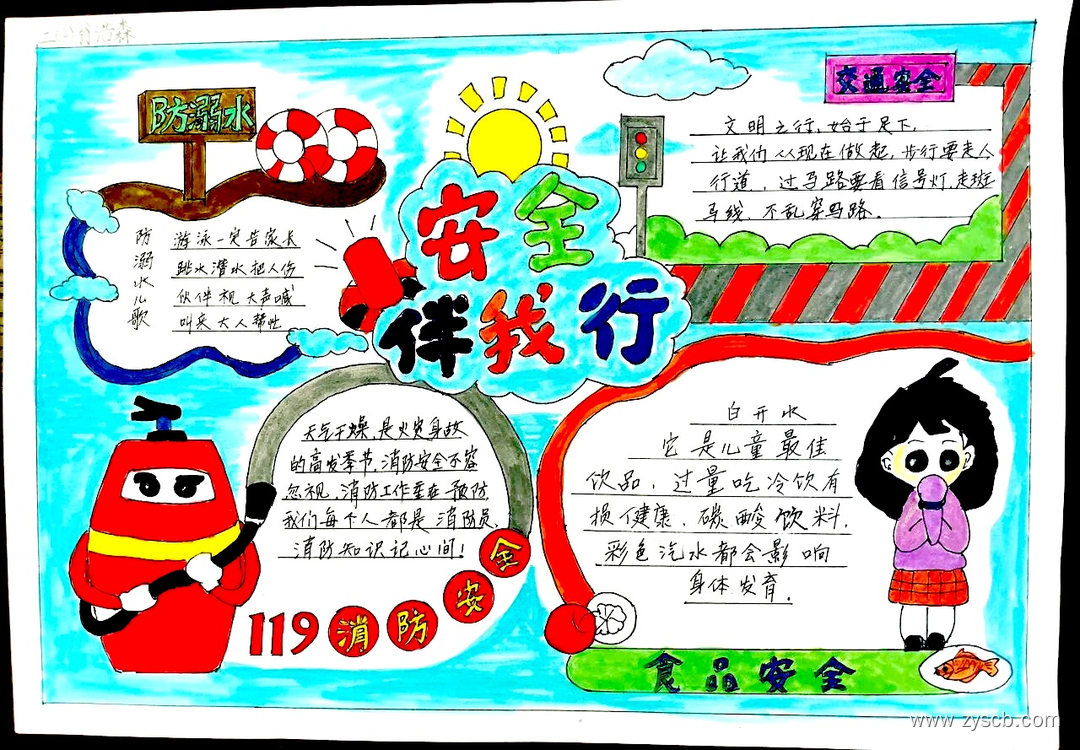 防溺水
防溺水儿歌
游泳一定告家长
跳水潜水把人伤
伙伴视大声喊
叫来大人帮忙
安全
伴我行
交通安全
文明之行,始于足下,
让我们从现在做起,步行要走人
行道,过马路要看信号灯,走斑
马线,不乱穿马路.
天气干燥,是火灾身故
的高发季节,消防安全不容
忽视,消防工作重在预防
我们每个人都是消防员,
消防知识记心间!
119消防安全
白开水
它是儿童最佳
饮品,过量吃冷饮有
损健康,碳酸饮料,
彩色汽水都会影响
身体发育.
食品安全
www.zyscb.com